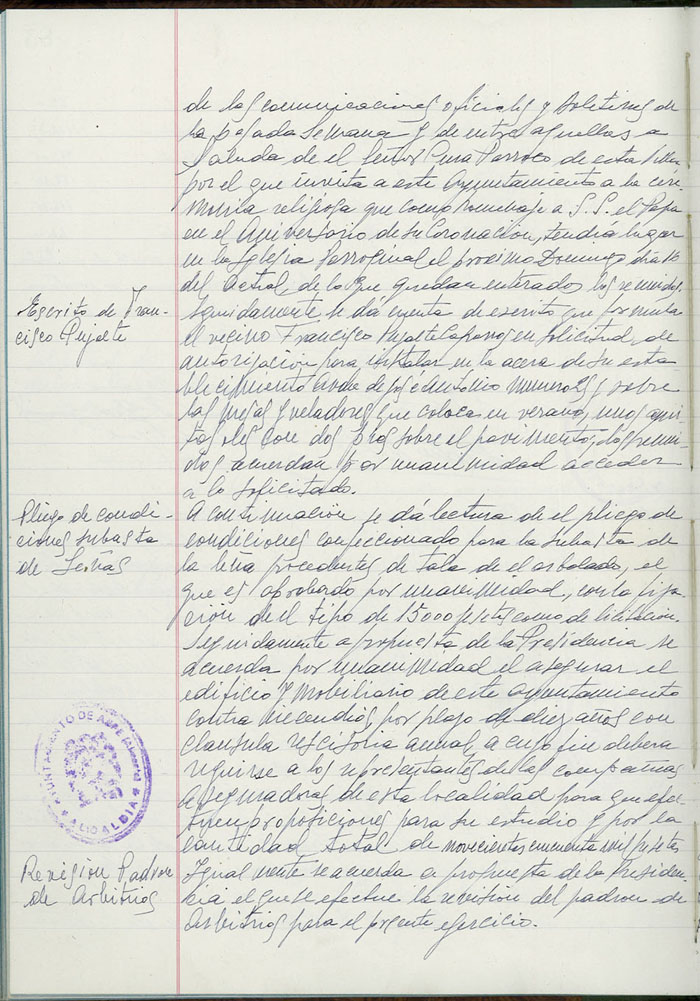 de las comunicaciones oficiales y Boletines de
la pasada semana y de entre aquellas a
Saluda de el Señor Cura Parroco de esta Villa
por el que invita a este Ayuntamiento a la cere-
monia religiosa que como homenaje a S.S. el Papa
en el Aniversario de su Coronacion, tendra lugar
en la Iglesia Parroquial el proximo Domingo dia 16
del actual de lo que quedan enterados los reunidos.
Escrito de Fran-
cisco Pujalte
Seguidamente se dá cuenta de escrito que formula
el vecino Francisco Pujalte Caparros en solicitud de
autorización para instalar en la acera de su esta
blecimiento Avda de José Antonio numero y sobre
las mesas y veladores que coloca en verano, unos
con dos sobre el pavimento, los reuni-
dos acuerdan por unanimidad acceder
a lo solicitado.
Pliego de condi-
ciones subasta
de Leñas
A continuación se dá lectura de el pliego de
condiciones confeccionado para la subasta de
la leña procedentes de tala de el arbolado, el
que es aprobado por unanimidad, con la fija
ción de el tipo de 15000 pesetas como de licitacion.
Seguidamente a propuesta de la Presidencia se
acuerda por unanimidad el asegurar el
edificio y Mobiliario de este Ayuntamiento
contra incendios, por plazo de diez años con
clausula rescisoria annual, a cuyo fin debera
reguirse a los representantes de las compañias
aseguradoras de esta localidad para que efec-
tuen proposiciones para su estudio y por la
cantidad total de novecientas cincuenta mil pesetas
AYUNTAMIENTO DE
ALCALDIA
Revision Padron
de Arbitrios
Igualmente se acuerda a propuesta de la Presiden
cia el que se efectue la revision del padron de
Arbitrios para el presente ejercicio.